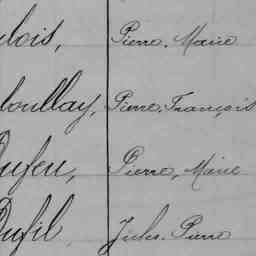 lois, Pierre. Marie
loullay, Pierre. François
Dufeu, Pierre, Marie
Dufil, Jules. Pierre